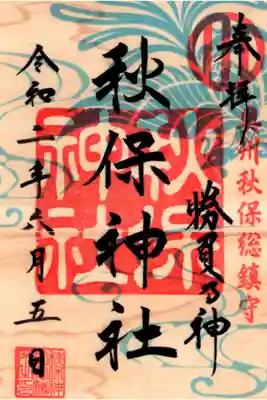 奉拝
奥州秋保総鎮守
勝負の神
秋保神社
秋保神社
令和二年六月五日